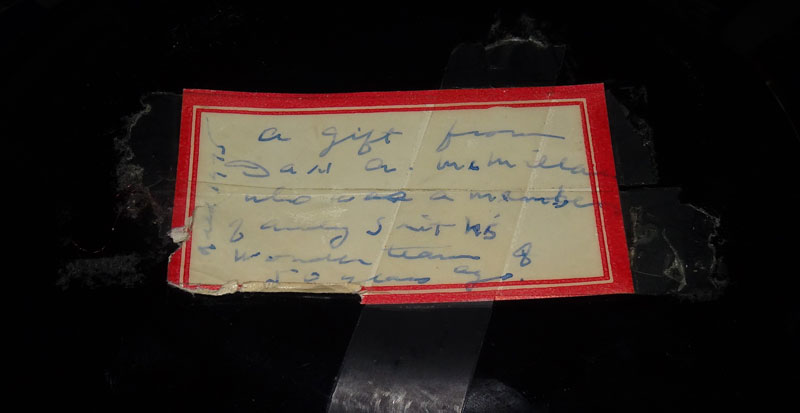 a gift from
Dan A. McMillan
who was a member
of andy Smith's
Wonder team of
50 years ago.